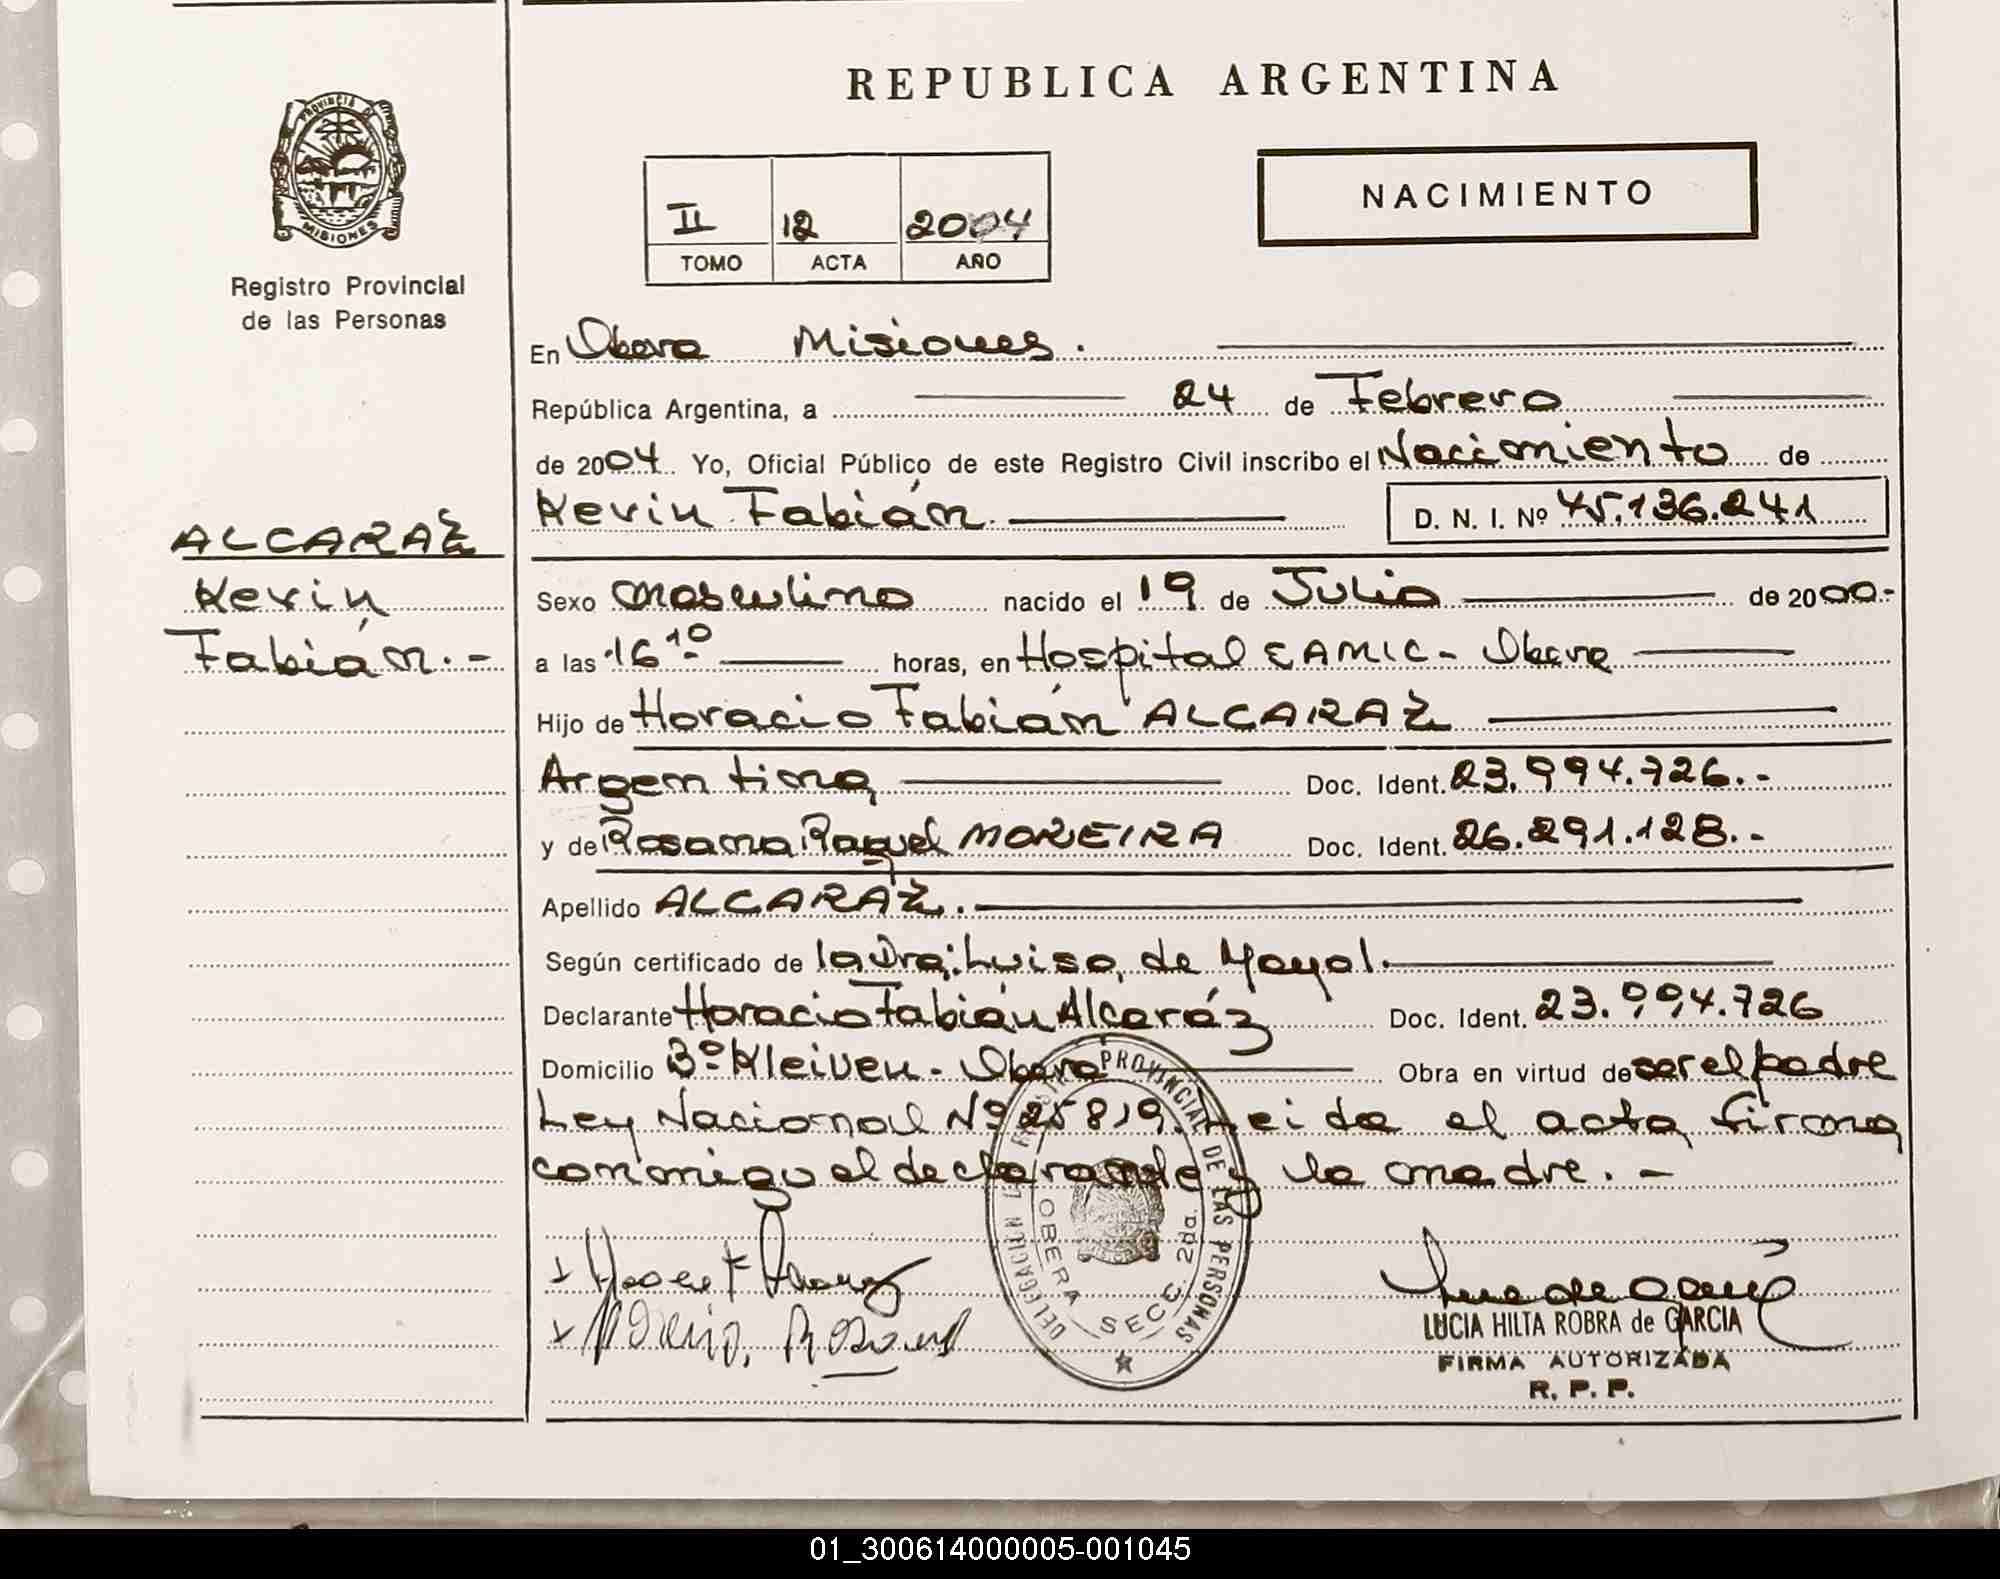 REPUBLICA ARGENTINA
PROVINCIA DE
MISIONES
Registro Provincial
de las Personas
II 12 2004
TOMO ACTA AÑO
NACIMIENTO
En Obera Misiones.
República Argentina, a 24 de Febrero
de 2004. Yo, Oficial Público de este Registro Civil inscribo el Nacimiento de
Kevin Fabián. D. N. I. Nº 45.136.241
ALCARAZ
Kevin
Fabián.-
Sexo masculino nacido el 19 de Julio de 2000.-
a las 16 10 horas, en Hospital SAMIC - Obera
Hijo de Horacio Fabián ALCARAZ
Argentina Doc. Ident. 23.994.726.-
y de Rosana Raquel MOREIRA Doc. Ident. 26.291.128.-
Apellido ALCARÁZ.
Según certificado de la Dra: Luisa, de Mayol.
Declarante Horacio Fabián Alcaráz Doc. Ident. 23.994.726
Domicilio Bº Kleiven - Obera Obra en virtud de ser el padre
Ley Nacional Nº 25819. Leida el acta firma
conmigo el declarante y la madre.-
DELEGACION REGISTRO PROVINCIAL DE LAS PERSONAS
OBERA SECC. 2da.
LUCIA HILTA ROBRA de GARCIA
FIRMA AUTORIZADA
R. P. P.
01_300614000005-001045